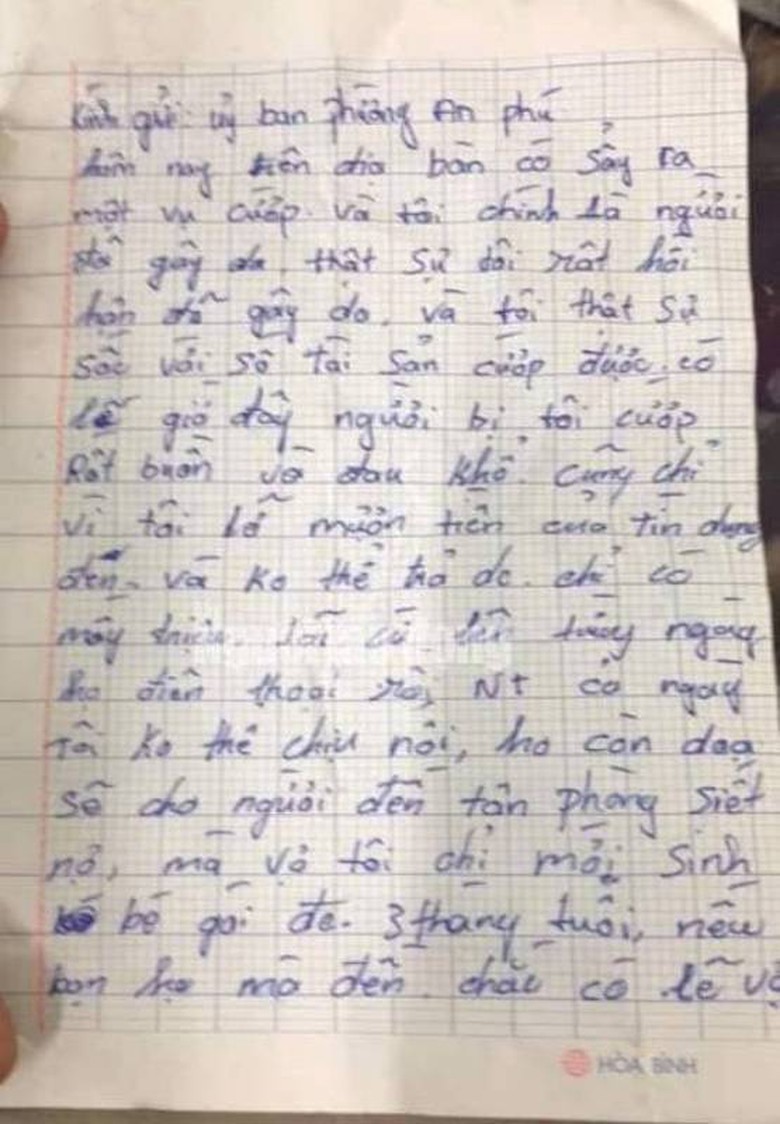 Kính gửi: uỷ ban phường An phú
hôm nay trên địa bàn có sảy ra
một vụ cướp. và tôi chính là người
đã gây da, thật sự tôi rất hối
hận đã gây do. và tôi thật sự
sốc với số tài sản cướp được, có
lẽ giờ đây người bị tôi cướp
Rất buồn và đau khổ. cũng chỉ
vì tôi lỡ mượn tiền của tín dụng
đen. và ko thể trả dc. chỉ có
mấy triệu. lãi cứ lên từng ngày
họ điện thoại rồi, NT cả ngày
tôi ko thể chịu nổi, họ còn dọa
sẽ cho người đến tận phòng siết
nợ, mà vợ tôi chỉ mới sinh
bé gái dc. 3 tháng tuổi, nếu
bọn họ mà đến. chắc có lẽ vợ
HÒA BÌNH